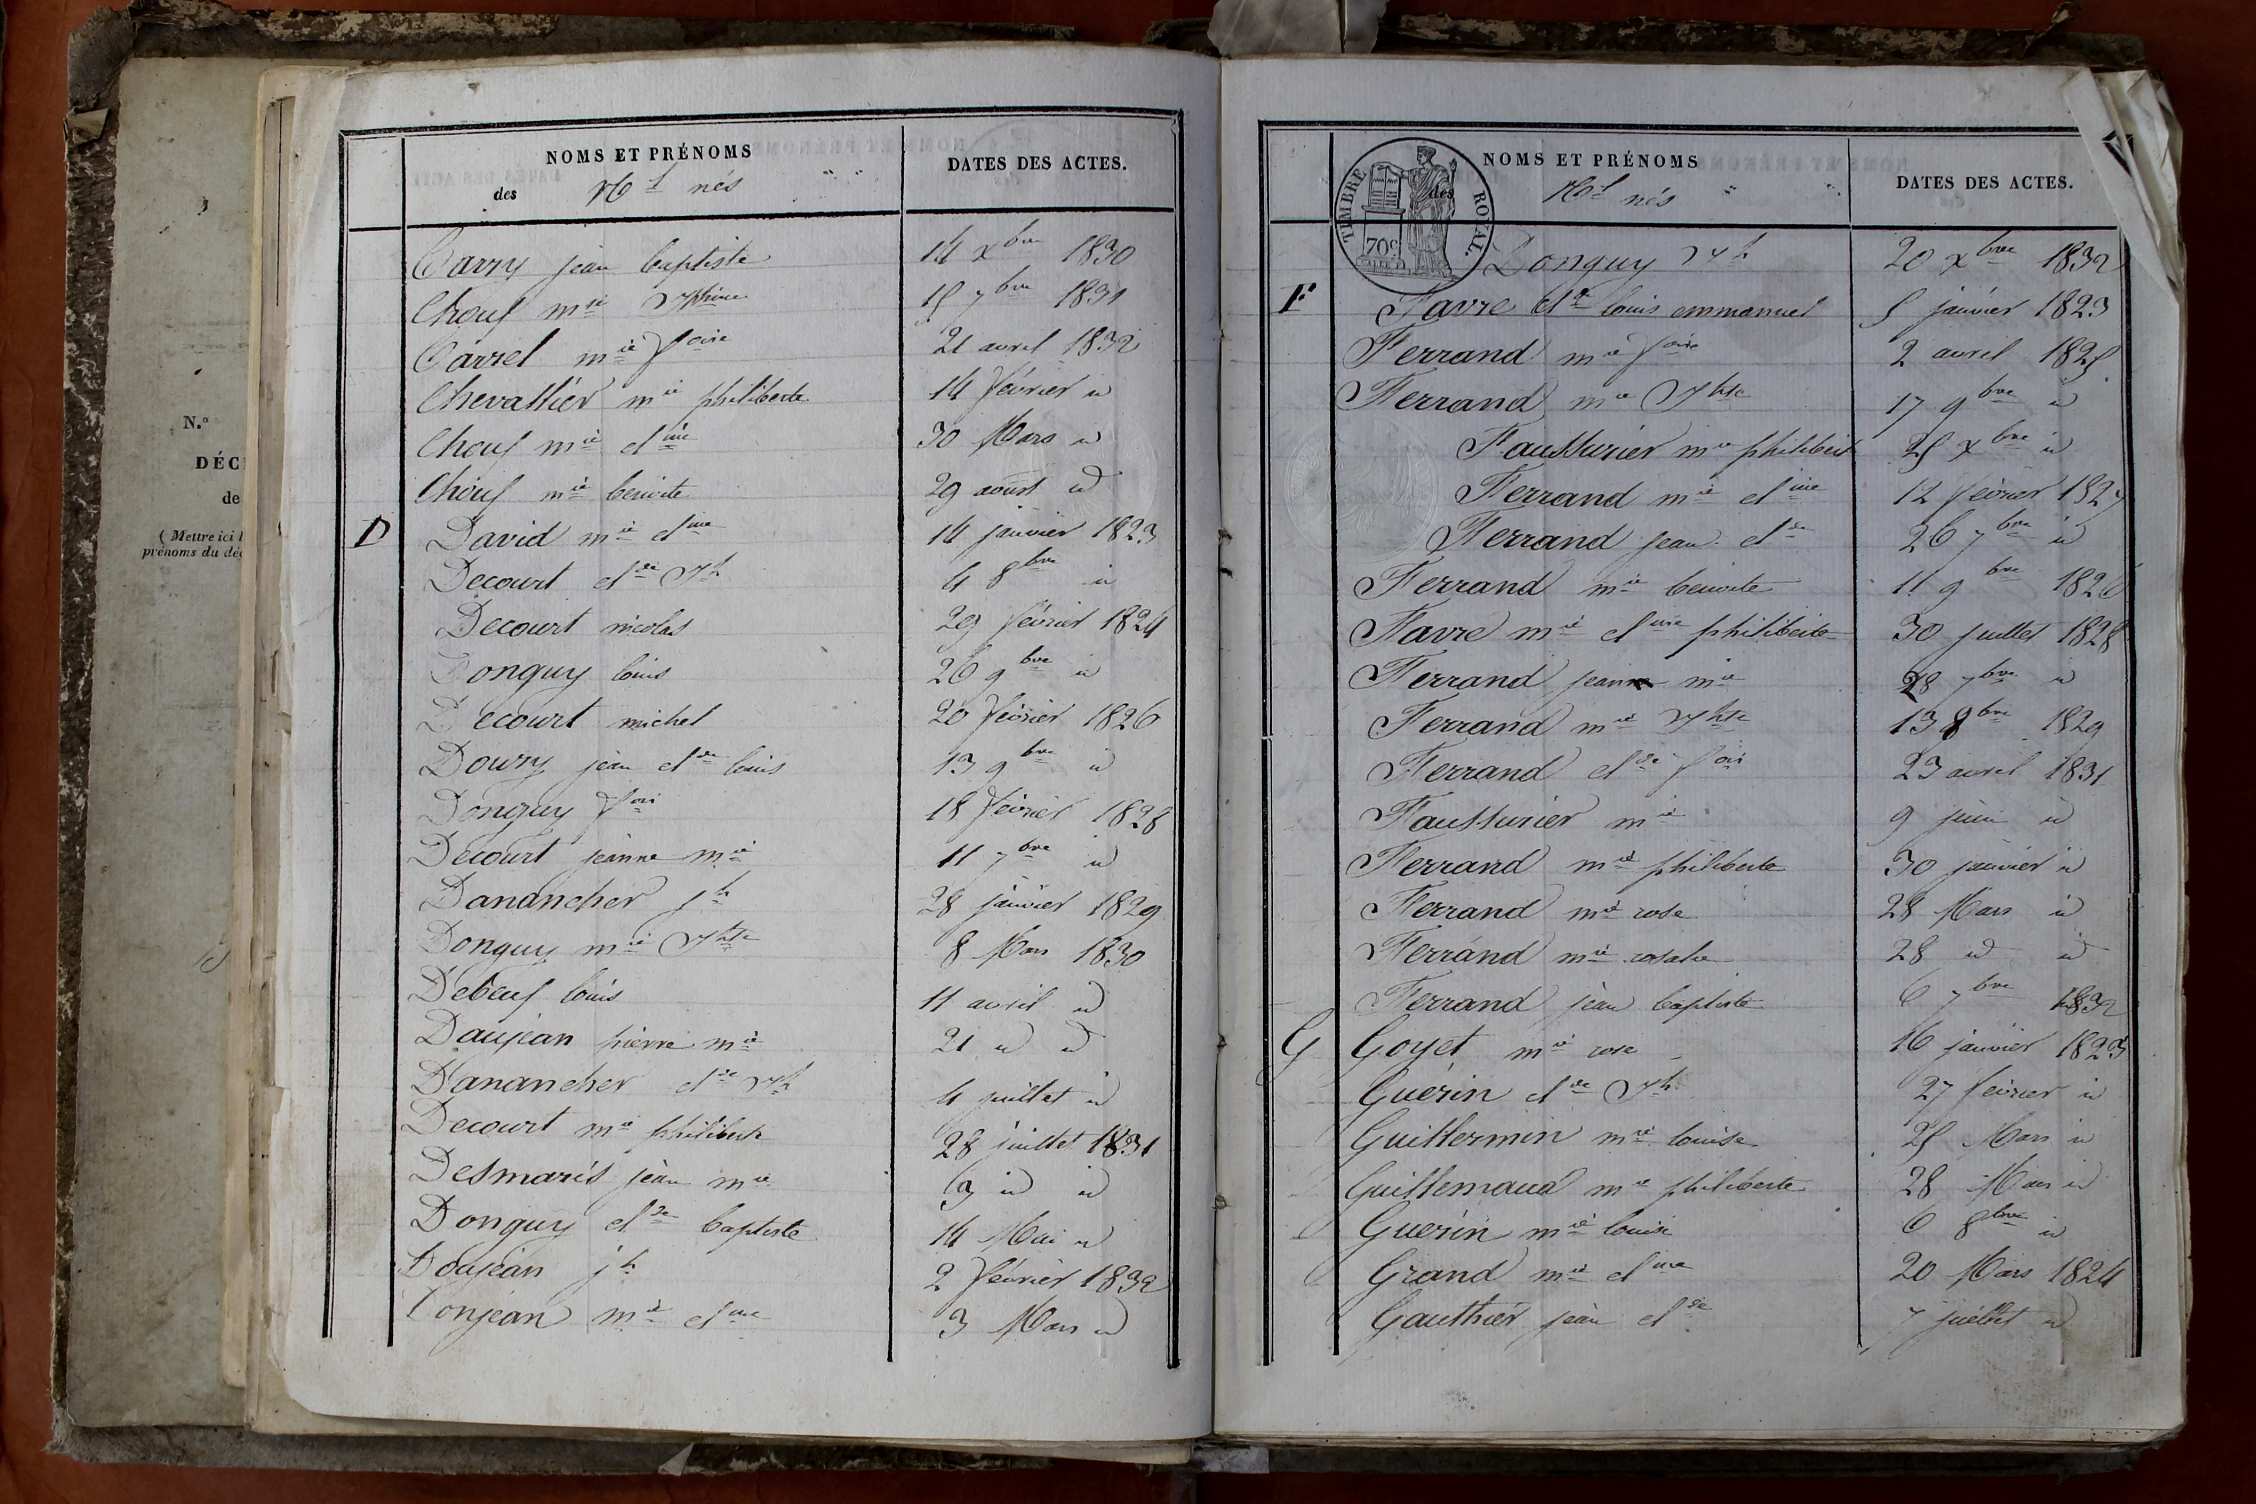 N.o
DÉC
de
( Mettre ici l
prénoms du déc
NOMS ET PRÉNOMS
des nés
DATES DES ACTES.
Carry jean baptiste 14 xbre 1830
Chouf mie Jphine 15 7bre 1831
Carrel mie foise 21 avril 1832
Chevallier mie philiberte 14 février id
Chouf mie cl ine 30 Mars id
Chouf mie benoite 29 aoust id
D David mie cl ine 14 janvier 1823
Decourt cl de Jh 4 8bre id
Decourt nicolas 29 février 1824
Donguy louis 26 9bre id
Decourt michel 20 février 1826
Doury jean cl de louis 13 9bre id
Donguy fois 18 février 1828
Decourt jeanne mie 11 7bre id
Danancher jh 28 janvier 1829
Donguy mie Jhte 8 Mars 1830
Debeuf louis 11 avril id
Daujean pierre mie 21 id id
Danancher cl de Jh 4 juillet id
Decourt mie philiberte 28 juillet 1831
Desmaris jean mie 9 id id
Donguy cl de baptiste 14 Mai id
Doujean jh 2 février 1832
Donjean mie cl ine 3 Mars id
NOMS ET PRÉNOMS
des nés
DATES DES ACTES.
TIMBRE ROYAL.
70c
Donguy Jh 20 xbre 1832
F Favre cl de louis emmanuel 5 janvier 1823
Ferrand mie foise 2 avril 1825
Ferrand mie Jhte 17 9bre id
Fausturier mie philibert 25 xbre id
Ferrand mie cl ine 12 février 1827
Ferrand jean cl de 26 7bre id
Ferrand mie benoite 11 9bre 1826
Favre mie cl ine philiberte 30 juillet 1828
Ferrand jeanne mie 28 7bre id
Ferrand mie Jhte 13 8bre 1829
Ferrand cl de fois 23 avril 1831
Fausturier mie 9 juin id
Ferrand mie philiberte 30 janvier id
Ferrand mie rose 28 Mars id
Ferrand mie rosalie 28 id id
Ferrand jean baptiste 6 7bre 1832
G Goyet mie rose 16 janvier 1823
Guérin cl de Jh 27 février id
Guillermin mie louise 25 Mars id
Guillemaud mie philiberte 28 Mars id
Guerin mie louise 6 8bre id
Grand mie cl ine 20 Mars 1824
Gauthier jean cl de 7 juillet id